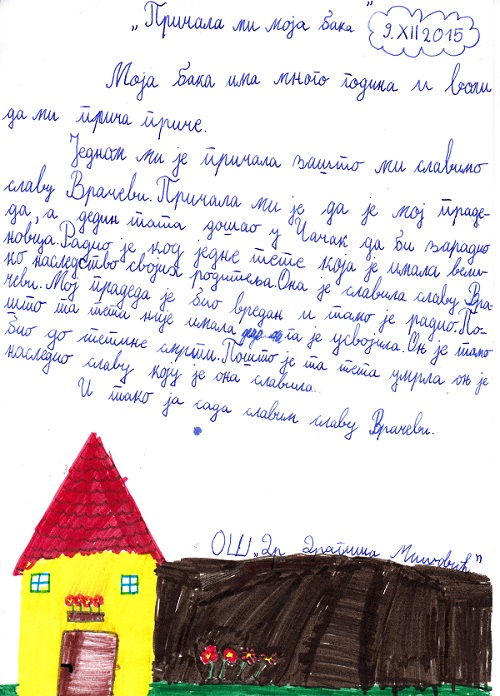 „Причала ми моја бака”
9. XII 2015
Моја бака има много година и воли
да ми прича приче.
Једном ми је причала зашто ми славимо
славу Врачеви. Причала ми је, да је мој праде-
да, а дедин тата дошао у Чачак да би зарадио
новца. Радио је код једне тете која је имала вели-
ко наследство својих родитеља. Она је славила славу Вра-
чеви. Мој прадеда је био вредан и тако је радио. По-
што та тета није имала та је усвојила. Он је тако
био до тетине смрти. Пошто је та тета умрла он је
наследио славу коју је она славила.
И тако ја сада славим славу Врачеви.
ОШ „Др Драгиша Мишовић”